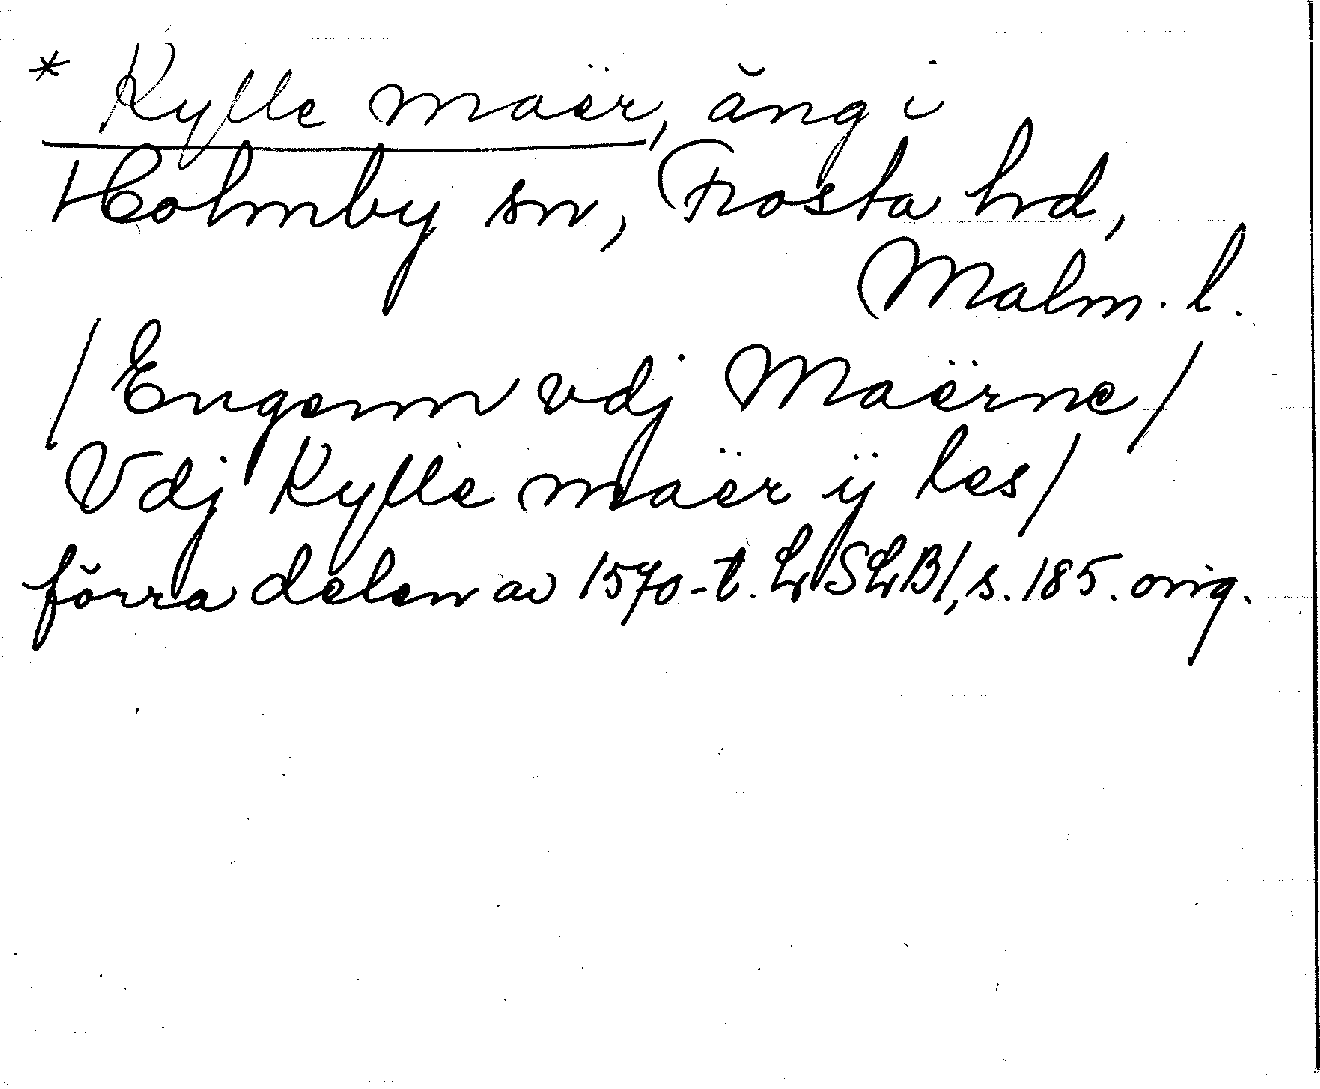 * Kylle maër, äng i
Holmby sn, Frosta hd,
Malm. l.
/ Engenn vdj Maërne /
Vdj Kylle maër ij les /
förra delen av 1570-t. LSLB1, s. 185. orig.